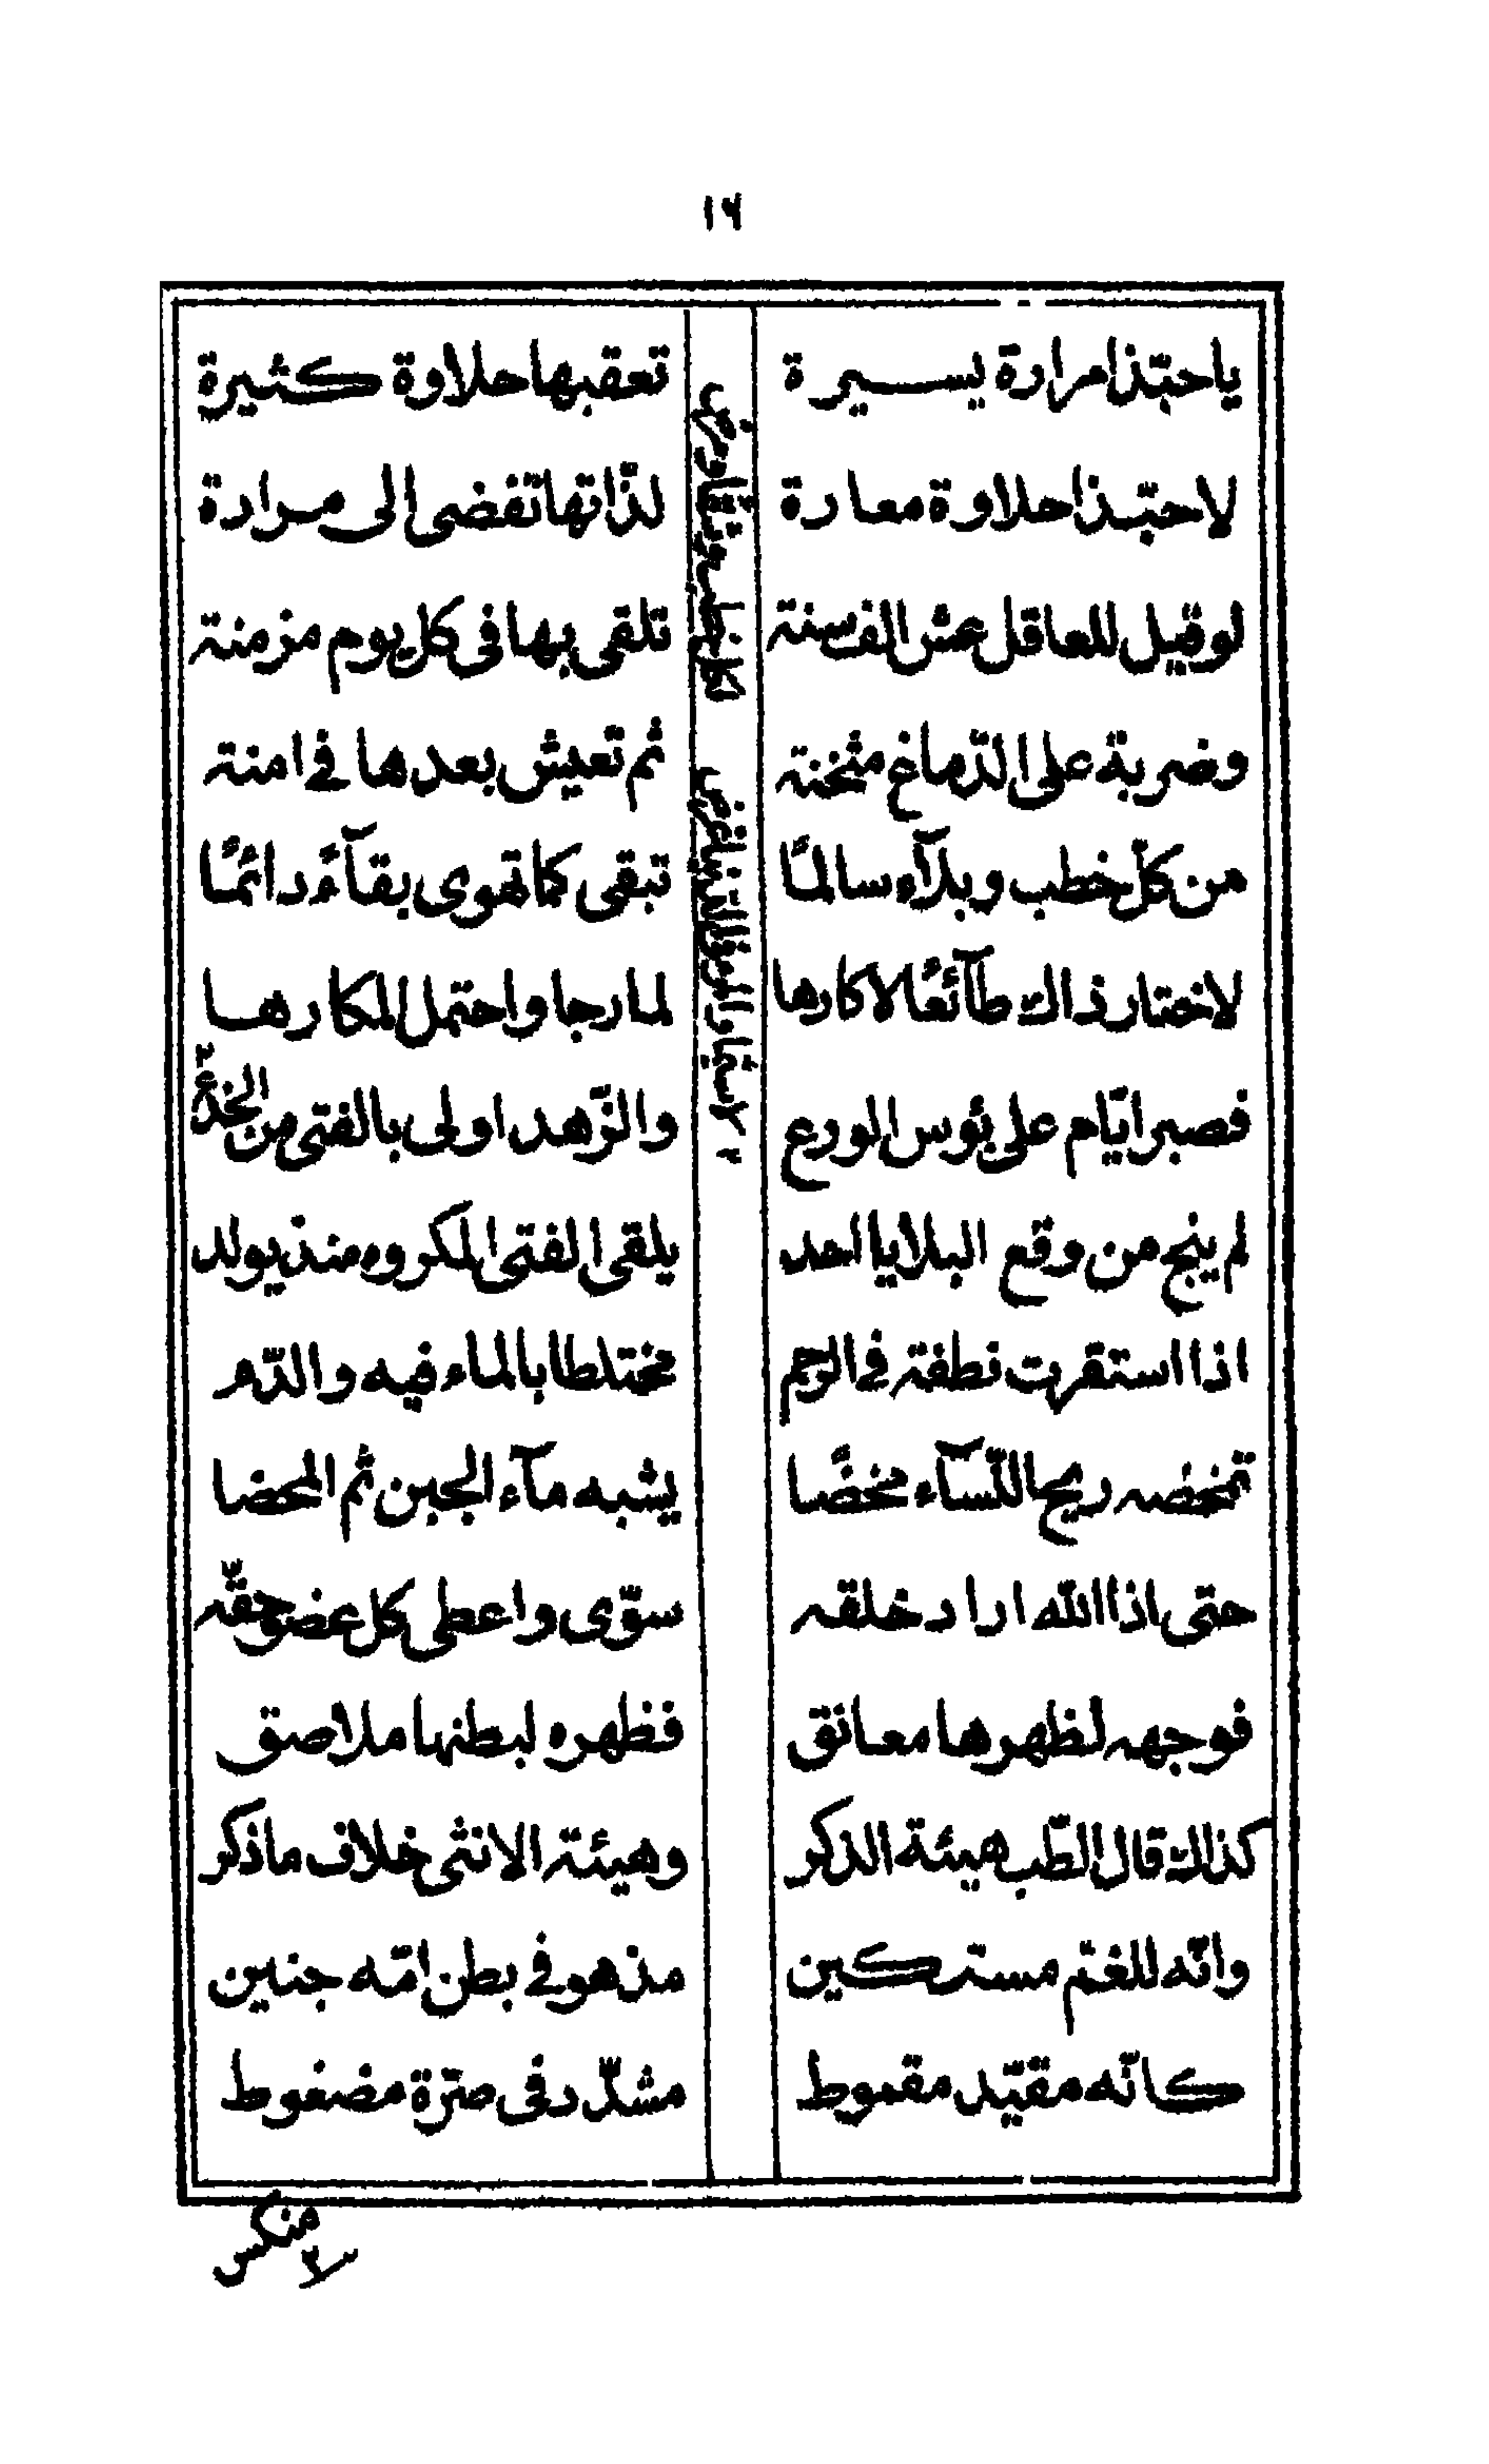 ١٦
ياحبّذا مرارة يسيرة تعقبها حلاوة كثيرة
لا حبّذا حلاوة معارة لذّاتها تفضى الى مرارة
لو قيل للعاقل عش الف سنة تلقى بها فى كل يوم مزمنة
وضربة على الدّماغ مثخنة ثم تعيش بعدها في امنة
من كلّ خطب وبلآء سالمًا تبقى كما تهوى بقآءً دائمًا
لاختار ذاك طآئعًا لا كارها لما رجا واحتمل المكارها
فصبر ايّام على بؤس الورع والزّهد اولى بالفتى من الخدع
لم ينج من وقع البلايا احد يلقى الفتى المكروه منذ يولد
اذا استقرت نطفة في الرحم مختلطا بالماء فيه والدّم
تمخضه ريح النّسآء مخضًا يشبه مآء الجبن ثم المحضا
حتى اذا اللّه اراد خلقه سوّى واعطى كل عضو حقّه
فوجهه لظهرها معانق فظهره لبطنها ملاصق
كذاك قال الطّب هيئة الذكر وهيئة الانثى خلاف ماذكر
وانّه للغمّ مستكين مذ هو في بطن امّه جنين
كانّه مقيّد مقموط مشدّد فى صرّة مضغوط
لا منكر